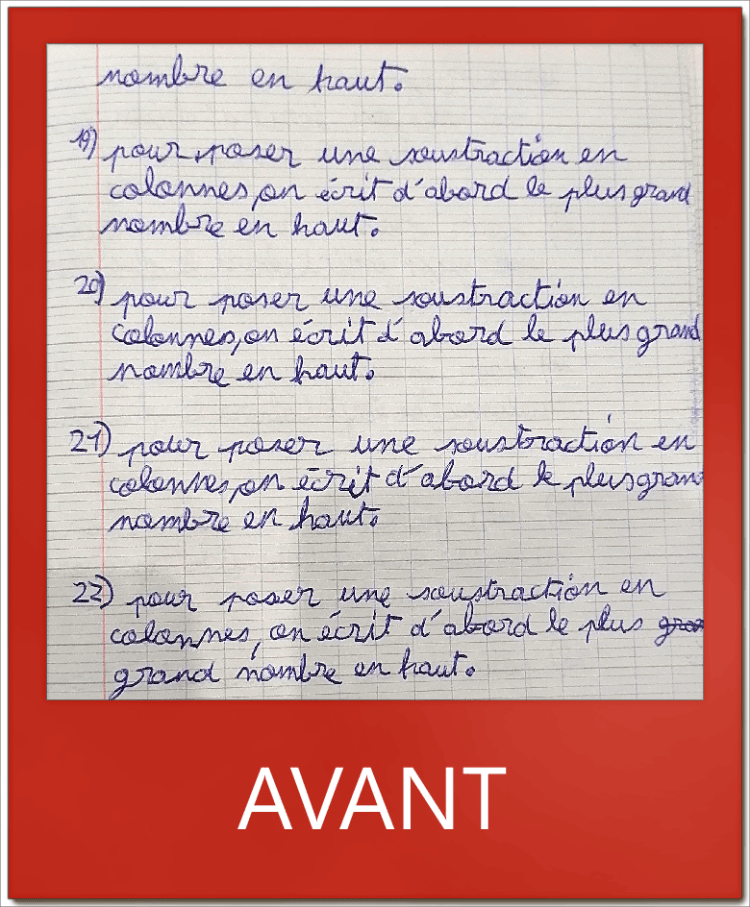 nombre en haut.
19) pour poser une soustraction en
colonnes, on écrit d'abord le plus grand
nombre en haut.
20) pour poser une soustraction en
colonnes, on écrit d'abord le plus grand
nombre en haut.
21) pour poser une soustraction en
colonnes, on écrit d'abord le plus grand
nombre en haut.
22) pour poser une soustraction en
colonnes, on écrit d'abord le plus
grand nombre en haut.
AVANT